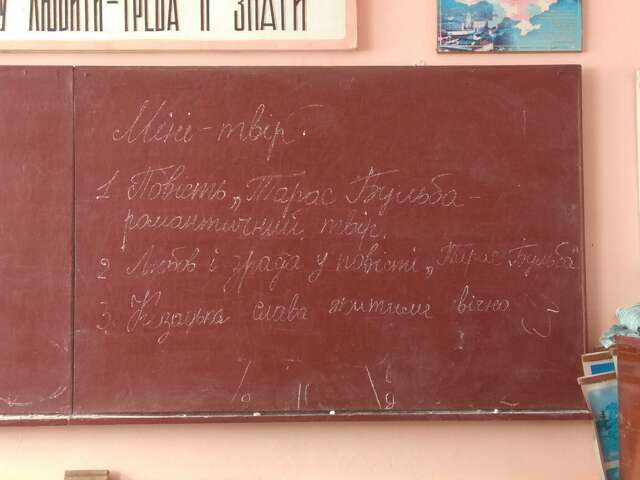 У ЛЮБИТИ-ТРЕБА Й ЗНАТИ
Міні-твір.
1 Повість „Тарас Бульба-
романтичний твір.
2 Любов і зрада у повісті „Тарас Бульба"
3. Козацька слава житиме вічно